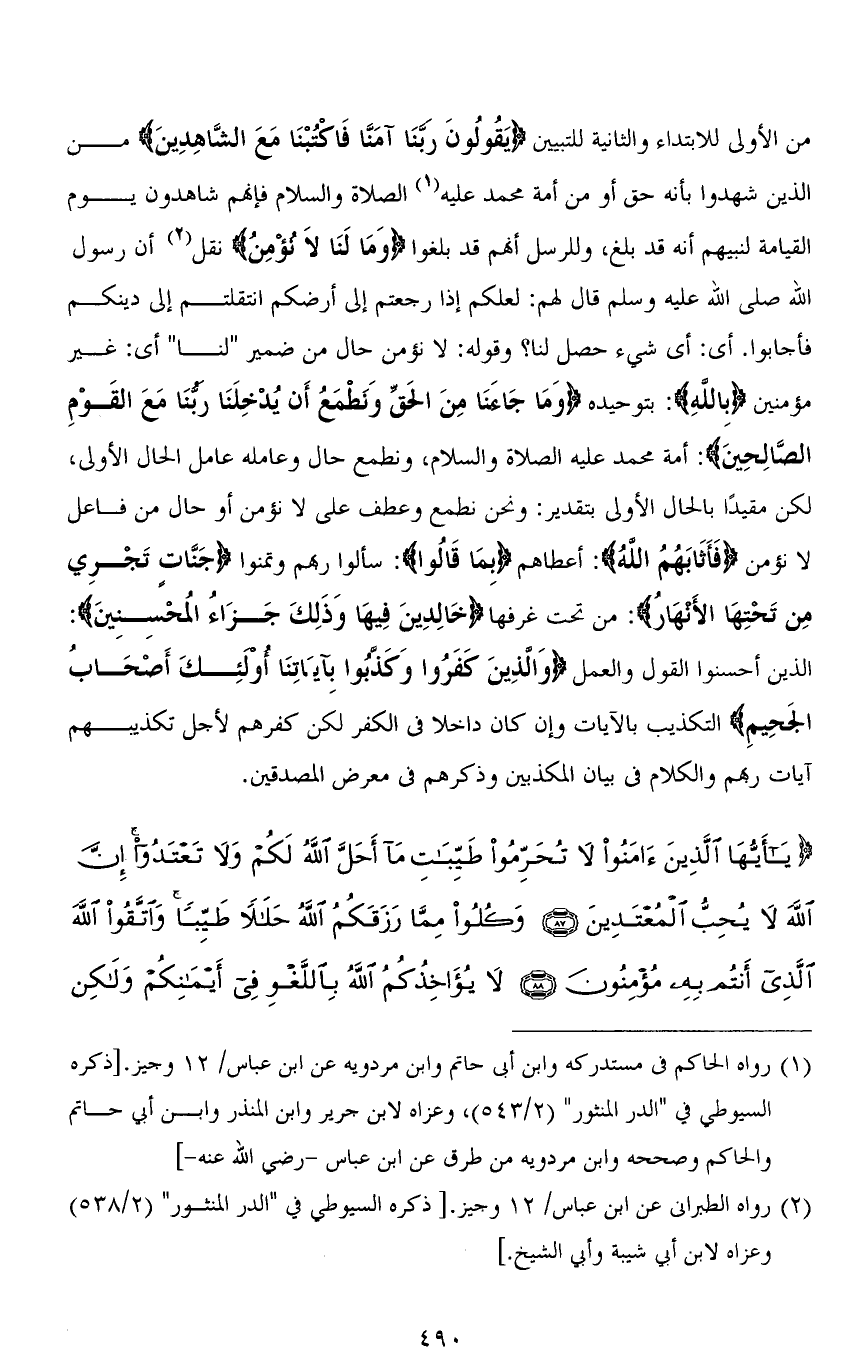 من الأولى للابتداء والثانية للتبيين ﴿يَقُولُونَ رَبَّنَا آمَنَّا فَاكْتُبْنَا مَعَ الشَّاهِدِينَ﴾ مـــن
الذين شهدوا بأنه حق أو من أمة محمد عليه(١) الصلاة والسلام فإنهم شاهدون يـــوم
القيامة لنبيهم أنه قد بلغ، وللرسل أنهم قد بلغوا ﴿وَمَا لَنَا لاَ نُؤْمِنُ﴾ نقل(٢) أن رسول
الله صلى الله عليه وسلم قال لهم: لعلكم إذا رجعتم إلى أرضكم انتقلتـــم إلى دينكـــم
فأجابوا. أى: أى شيء حصل لنا؟ وقوله: لا نؤمن حال من ضمير "لنـــا" أى: غـــير
مؤمنين ﴿بِاللَّهِ﴾: بتوحيده ﴿وَمَا جَاءَنَا مِنَ الحَقِّ وَنَطْمَعُ أَن يُدْخِلَنَا رَبُّنَا مَعَ القَـــوْمِ
الصَّالِحِينَ﴾: أمة محمد عليه الصلاة والسلام، ونطمع حال وعامله عامل الحال الأولى،
لكن مقيدًا بالحال الأولى بتقدير: ونحن نطمع وعطف على لا نؤمن أو حال من فـــاعل
لا نؤمن ﴿فَأَثَابَهُمُ اللَّهُ﴾: أعطاهم ﴿بِمَا قَالُوا﴾: سألوا ربهم وتمنوا ﴿جَنَّاتٍ تَجْـــرِي
مِن تَحْتِهَا الأَنْهَارُ﴾: من تحت غرفها ﴿خَالِدِينَ فِيهَا وَذَلِكَ جَـــزَاءُ المُحْسِـــنِينَ﴾:
الذين أحسنوا القول والعمل ﴿وَالَّذِينَ كَفَرُوا وَكَذَّبُوا بِآيَاتِنَا أُوْلَئِـــكَ أَصْحَـــابُ
الجَحِيمِ﴾ التكذيب بالآيات وإن كان داخلا فى الكفر لكن كفرهم لأجل تكذيبـــهم
آيات ربهم والكلام فى بيان المكذبين وذكرهم فى معرض المصدقين.
﴿يَـٰٓأَيُّهَا ٱلَّذِينَ ءَامَنُوا۟ لَا تُحَرِّمُوا۟ طَيِّبَـٰتِ مَآ أَحَلَّ ٱللَّهُ لَكُمْ وَلَا تَعْتَدُوٓا۟ ۚ إِنَّ
ٱللَّهَ لَا يُحِبُّ ٱلْمُعْتَدِينَ ٨٧ وَكُلُوا۟ مِمَّا رَزَقَكُمُ ٱللَّهُ حَلَـٰلًا طَيِّبًا ۚ وَٱتَّقُوا۟ ٱللَّهَ
ٱلَّذِىٓ أَنتُم بِهِۦ مُؤْمِنُونَ ٨٨ لَا يُؤَاخِذُكُمُ ٱللَّهُ بِٱللَّغْوِ فِىٓ أَيْمَـٰنِكُمْ وَلَـٰكِن
(١) رواه الحاكم فى مستدركه وابن أبى حاتم وابن مردويه عن ابن عباس/ ١٢ وجيز.[ذكره
السيوطي في "الدر المنثور" (٥٤٣/٢)، وعزاه لابن جرير وابن المنذر وابـــن أبي حـــاتم
والحاكم وصححه وابن مردويه من طرق عن ابن عباس –رضي الله عنه–]
(٢) رواه الطبرانى عن ابن عباس/ ١٢ وجيز.[ ذكره السيوطي في "الدر المنثـــور" (٥٣٨/٢)
وعزاه لابن أبي شيبة وأبي الشيخ.]
٤٩٠